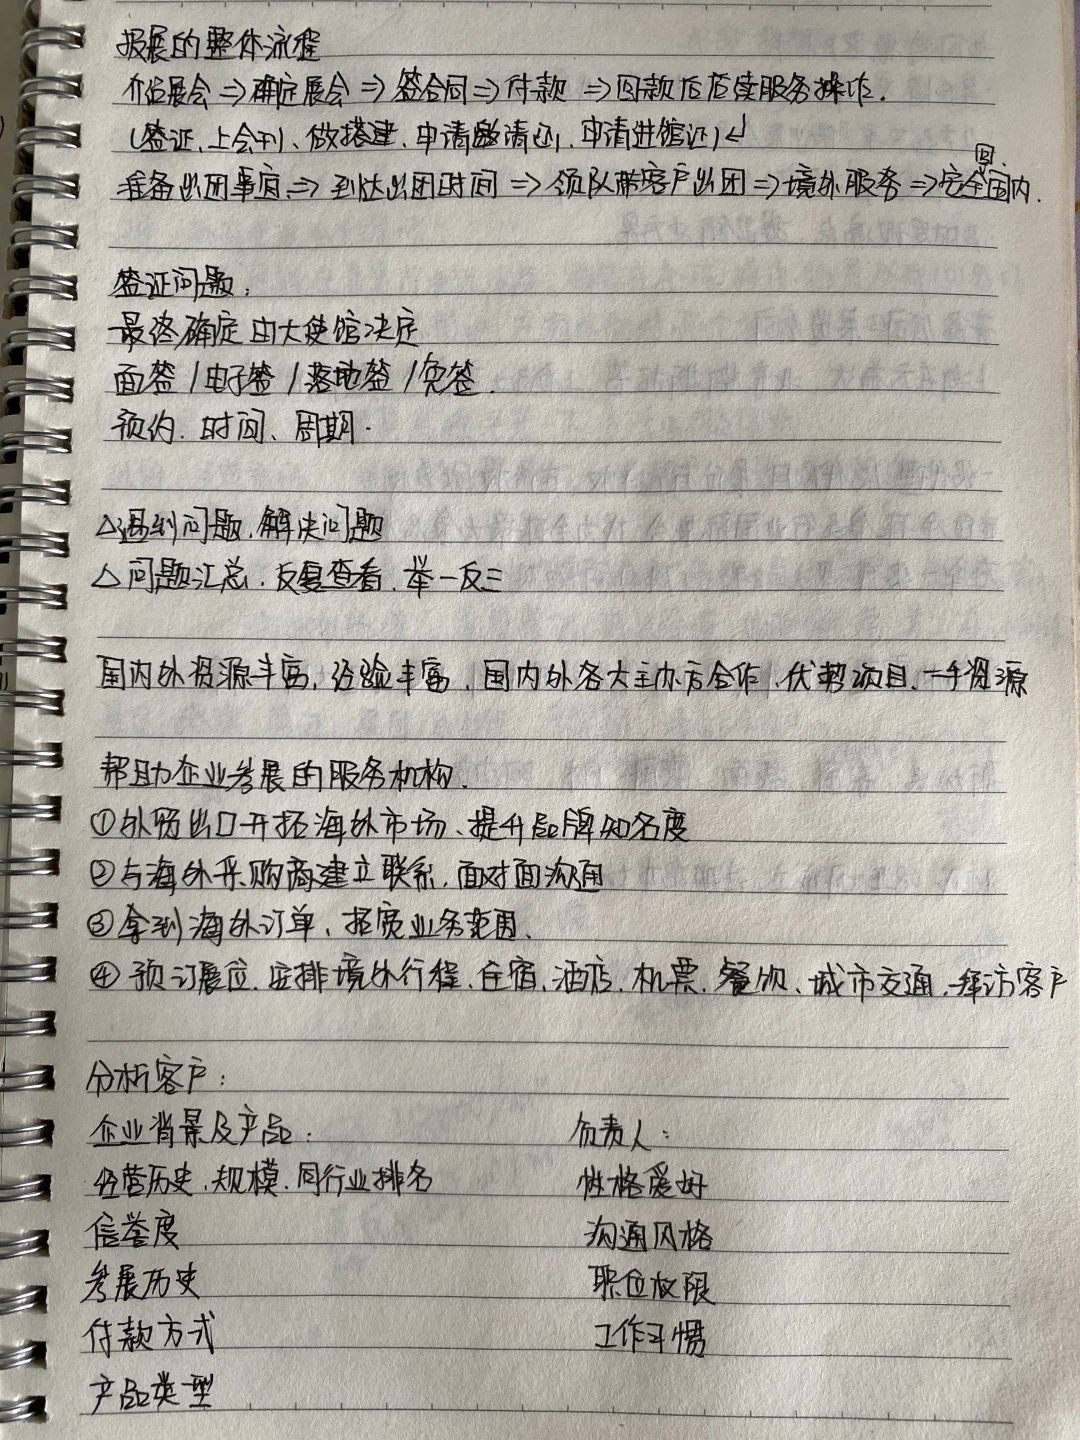 报展的整体流程
介绍展会⇒确定展会⇒签合同⇒付款⇒回款后后续服务操作.
(签证、上会刊、做搭建、申请邀请函、申请进馆证)↵
准备出团事宜⇒到达出团时间⇒领队带客户出团⇒境外服务⇒安全回国内.
签证问题:
最终确定由大使馆决定
面签/电子签/落地签/免签.
预约.时间、周期.
△遇到问题.解决问题
△问题汇总.反复查看.举一反三
国内外资源丰富,经验丰富,国内外各大主办方合作,优势项目、一手资源
帮助企业参展的服务机构.
①外贸出口开拓海外市场、提升品牌知名度
②与海外采购商建立联系,面对面沟通
③拿到海外订单、拓宽业务范围.
④预订展位.安排境外行程、住宿、酒店.机票、餐饮、城市交通.拜访客户
分析客户:
企业背景及产品: 负责人:
经营历史.规模.同行业排名 性格爱好
信誉度 沟通风格
参展历史 职位权限
付款方式 工作习惯
产品类型